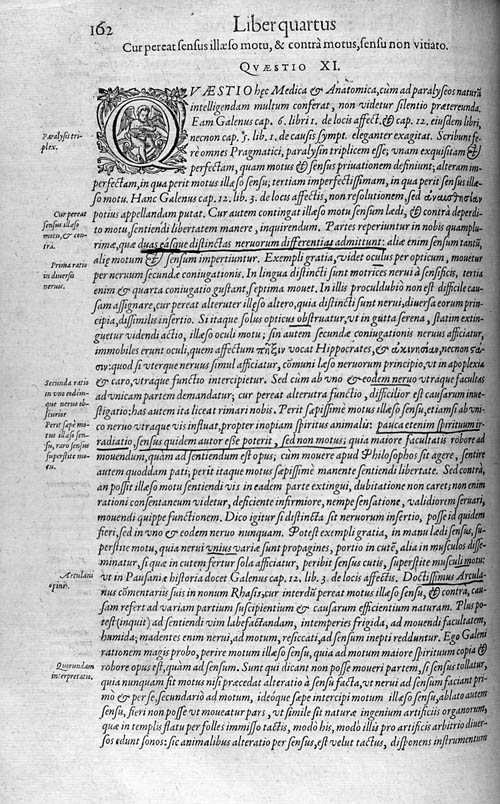 162
Liber quartus
Cur pereat sensus illæso motu, & contrà motus, sensu non vitiato.
QVÆSTIO XI.
QVÆSTIO hęc Medica & Anatomica, cùm ad paralyseos naturā
intelligendam multum conferat, non videtur silentio prætereunda.
Eam Galenus cap. 6. libri 1. de locis affect. & cap. 12. eiusdem libri,
necnon cap. 5. lib. 1. de causis sympt. eleganter exagitat. Scribunt fe-
rè omnes Pragmatici, paralysin triplicem esse; vnam exquisitam &
perfectam, quam motus & sensus priuationem definiunt; alteram im-
perfectam, in qua perit motus illæso sensu; tertiam imperfectissimam, in qua perit sensus illæ-
so motu. Hanc Galenus cap. 12. lib. 3. de locis affectis, non resolutionem, sed ἀναισθησίαν
potius appellandam putat. Cur autem contingat illæso motu sensum lædi, & contrà deperdi-
to motu sentiendi libertatem manere, inquirendum. Partes reperiuntur in nobis quamplu-
rimæ, quæ duas easque distinctas neruorum differentias admittunt: aliæ enim sensum tantū,
alię motum & sensum impertiuntur. Exempli gratia, videt oculus per opticum, mouetur
per neruum secundæ coniugationis. In lingua distincti sunt motrices nerui à sensificis, tertia
enim & quarta coniugatio gustant, septima mouet. In illis proculdubio non est difficile cau-
sam assignare, cur pereat alteruter illęso altero, quia distincti sunt nerui, diuersa eorum prin-
cipia, dissimilis insertio. Si itaque solus opticus obstruatur, vt in gutta serena, statim extin-
guetur videndi actio, illæso oculi motu; sin autem secundæ coniugationis neruus afficiatur,
immobiles erunt oculi, quem affectum πῆξιν vocat Hippocrates, & ἀκινησίαν, necnon ςά-
σιν: quod si vterque neruus simul afficiatur, cōmuni læso neruorum principio, vt in apoplexia
& caro, vtraque functio intercipietur. Sed cùm ab vno & eodem neruo vtraque facultas
ad vnicam partem demandatur; cur pereat alterutra functio, difficilior est causarum inue-
stigatio: has autem ita liceat rimari nobis. Perit sæpissimè motus illæso sensu, etiamsi ab vni-
co neruo vtraque vis influat, propter inopiam spiritus animalis: pauca etenim spirituum ir-
radiatio, sensus quidem autor esse poterit, sed non motus; quia maiore facultatis robore ad
mouendum, quàm ad sentiendum est opus; cùm mouere apud Philosophos sit agere, sentire
autem quoddam pati; perit itaque motus sæpissimè manente sentiendi libertate. Sed contrà,
an possit illæso motu sentiendi vis in eadem parte extingui, dubitatione non caret; non enim
rationi consentaneum videtur, deficiente infirmiore, nempe sensatione, validiorem seruari,
mouendi quippe functionem. Dico igitur si distincta sit neruorum insertio, posse id quidem
fieri, sed in vno & eodem neruo nunquam. Potest exempli gratia, in manu lædi sensus, su-
perstite motu, quia nerui vnius variæ sunt propagines, portio in cutē, alia in musculos disse-
minatur, si quæ in cutem fertur sola afficiatur, peribit sensus cutis, superstite musculi motu:
vt in Pausaniæ historia docet Galenus cap. 12. lib. 3. de locis affectis. Doctissimus Arcula-
nus cōmentariis suis in nonum Rhasis, cur interdū pereat motus illæso sensu, & contrà, cau-
sam refert ad variam partium suscipientium & causarum efficientium naturam. Plus po-
test (inquit) ad sentiendi vim labefactandam, intemperies frigida, ad mouendi facultatem,
humida; madentes enim nerui, ad motum, resiccati, ad sensum inepti redduntur. Ego Galeni
rationem magis probo, perire motum illæso sensu, quia ad motum maiore spirituum copia &
robore opus est, quàm ad sensum. Sunt qui dicant non posse moueri partem, si sensus tollatur,
quia nunquam fit motus nisi præcedat alteratio à sensu facta, vt nerui ad sensum faciant pri-
mò & per se, secundariò ad motum, ideóque sæpe intercipi motum illæso sensu, ablato autem
sensu, fieri non posse vt moueatur pars, vt simile sit naturæ ingenium artificiis organorum,
quæ in templis flatu per folles immisso tactis, modò his, modò illis pro artificis arbitrio diuer-
sos edunt sonos: sic animalibus alteratio per sensus, est velut tactus, disponens instrumentum
Paralysis tri-
plex.
Cur pereat
sensus illæso
motu, & con-
trà.
Prima ratio
in diuersis
neruis.
Secunda ratio
in vno eodém-
que neruo ob-
scurior.
Perit sæpe mo-
tus illæso sen-
su, rarò sensus
superstite mo-
tu.
Arculani
opinio.
Quorundam
interpretatio.